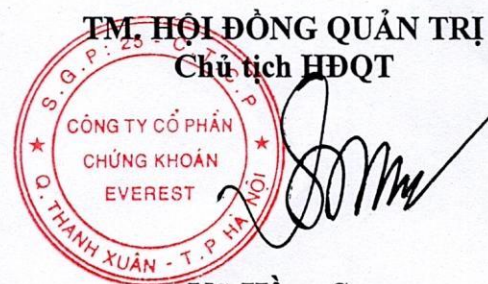 TM. HỘI ĐỒNG QUẢN TRỊ
Chủ tịch HĐQT
S.G.P: 25 - C.T.C.P
CÔNG TY CỔ PHẦN
CHỨNG KHOÁN
EVEREST
Q. THANH XUÂN - T.P HÀ NỘI